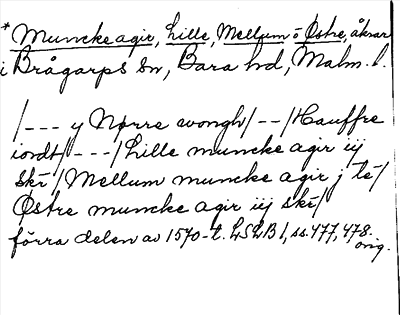 * Muncke agir, Lille, Mellum o Østre, åkrar
i Brågarps sn, Bara hd, Malm. l.
/--- y Nørre wongh/--/Hauffre
iordt/---/Lille muncke agir iij
skr̄/Mellum muncke agir j te/
Østre muncke agir iij skr̄/
förra delen av 1570-t. LSLB 1, ss. 477, 478.
orig.